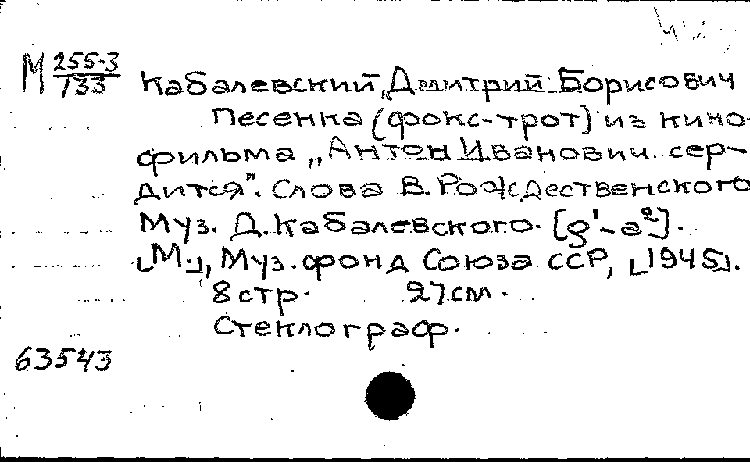 М 255-3/133
Кабалевский, Дмитрий Борисович
Песенка (фокс-трот) из кино-
фильма „Антон Иванович сер-
дится". Слова В. Рождественского
Муз. Д. Кабалевского. [g¹-a²].
[М.], Муз. фонд Союза ССР, [1945].
8 стр. 27 см.
Стеклограф.
63543